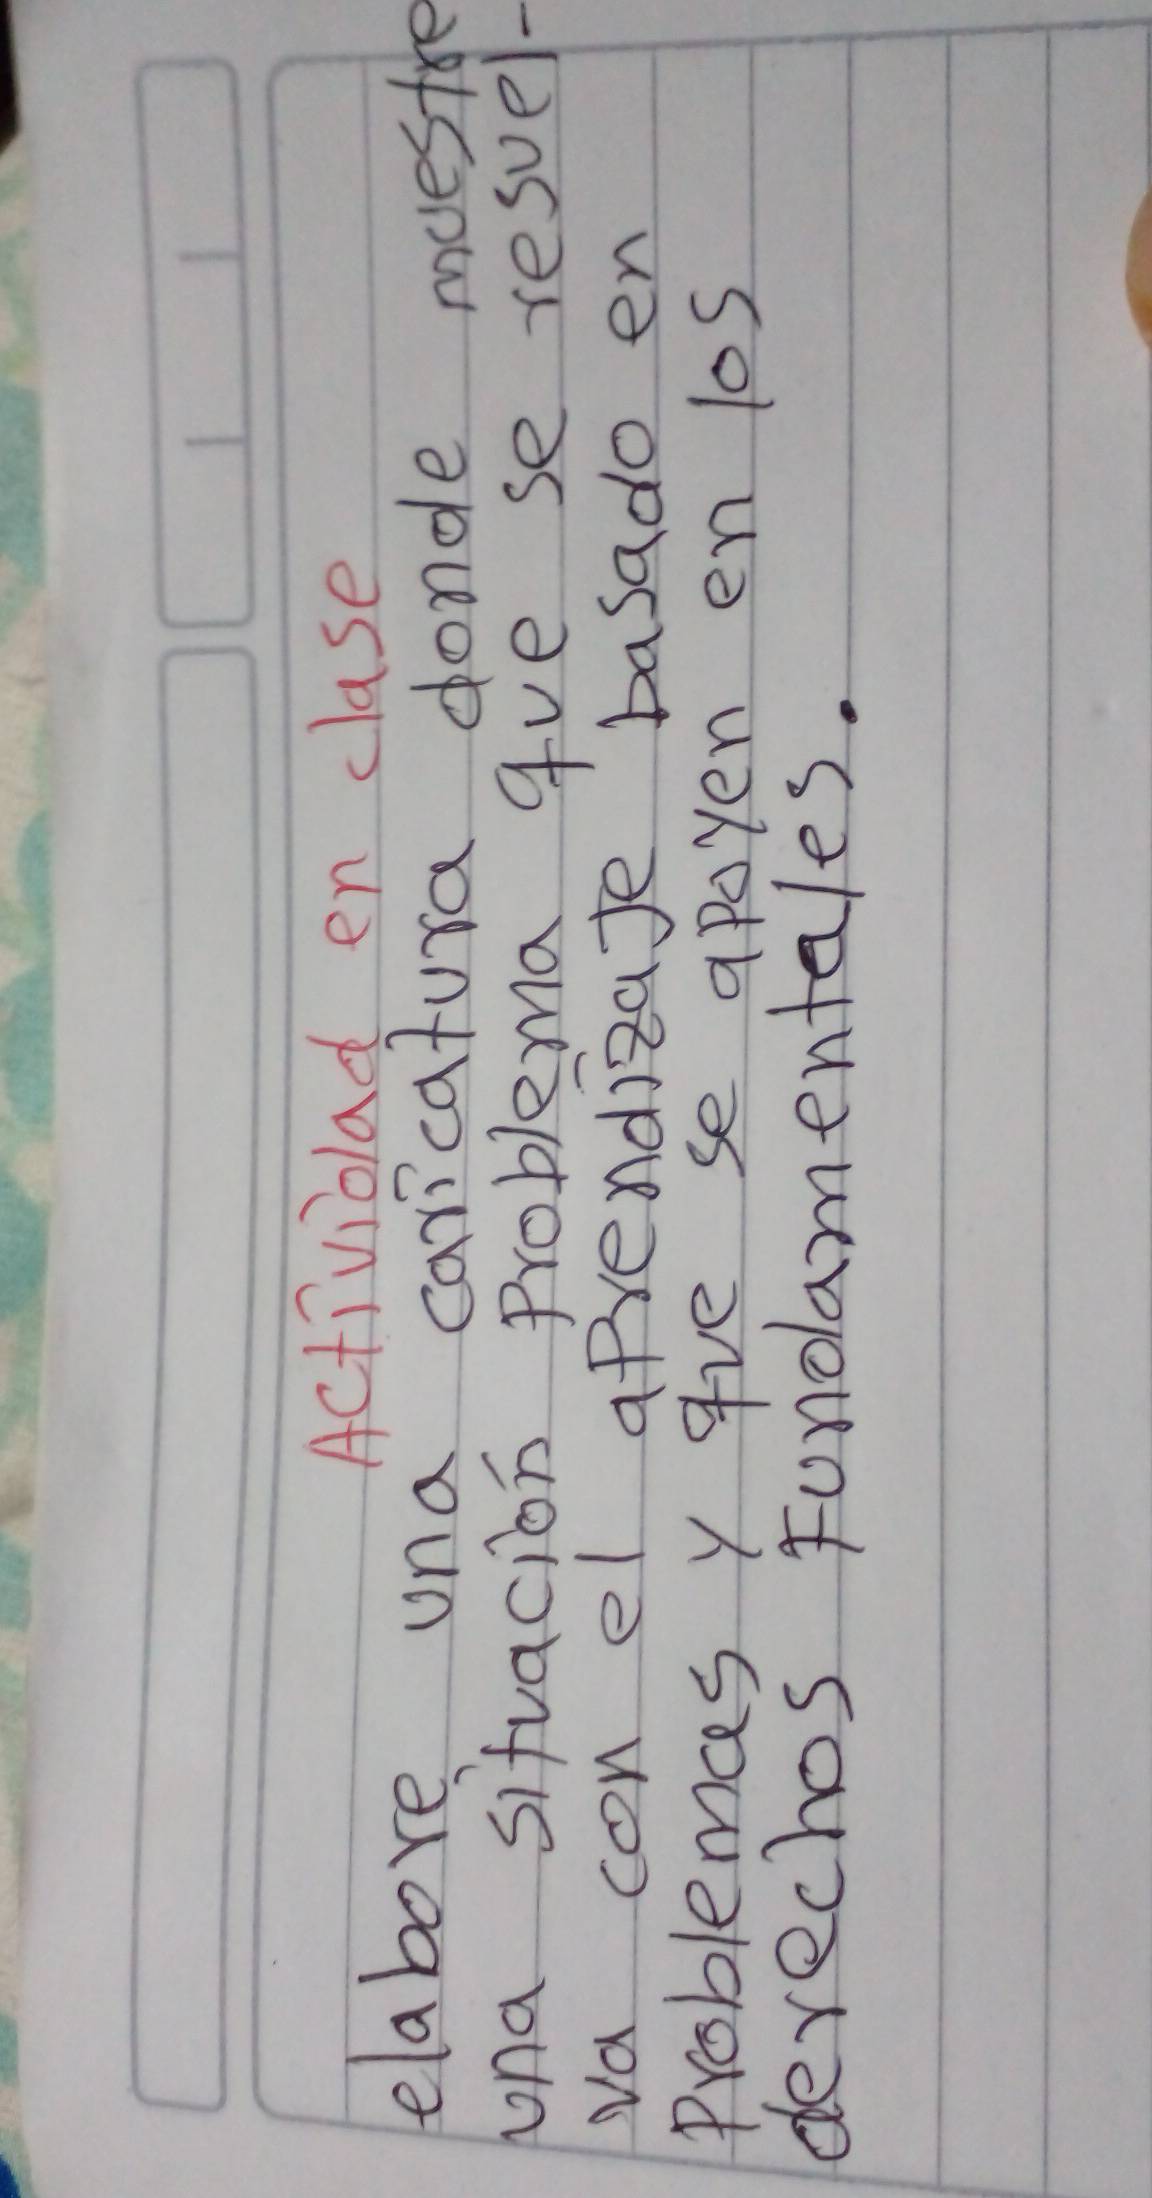 Actividad en clase
elabore una caricatura donde muestre
una situación problema que se resuel-
va con el aprendizaje basado en
problemas y que se apoyen en los
derechos Fundamentales.